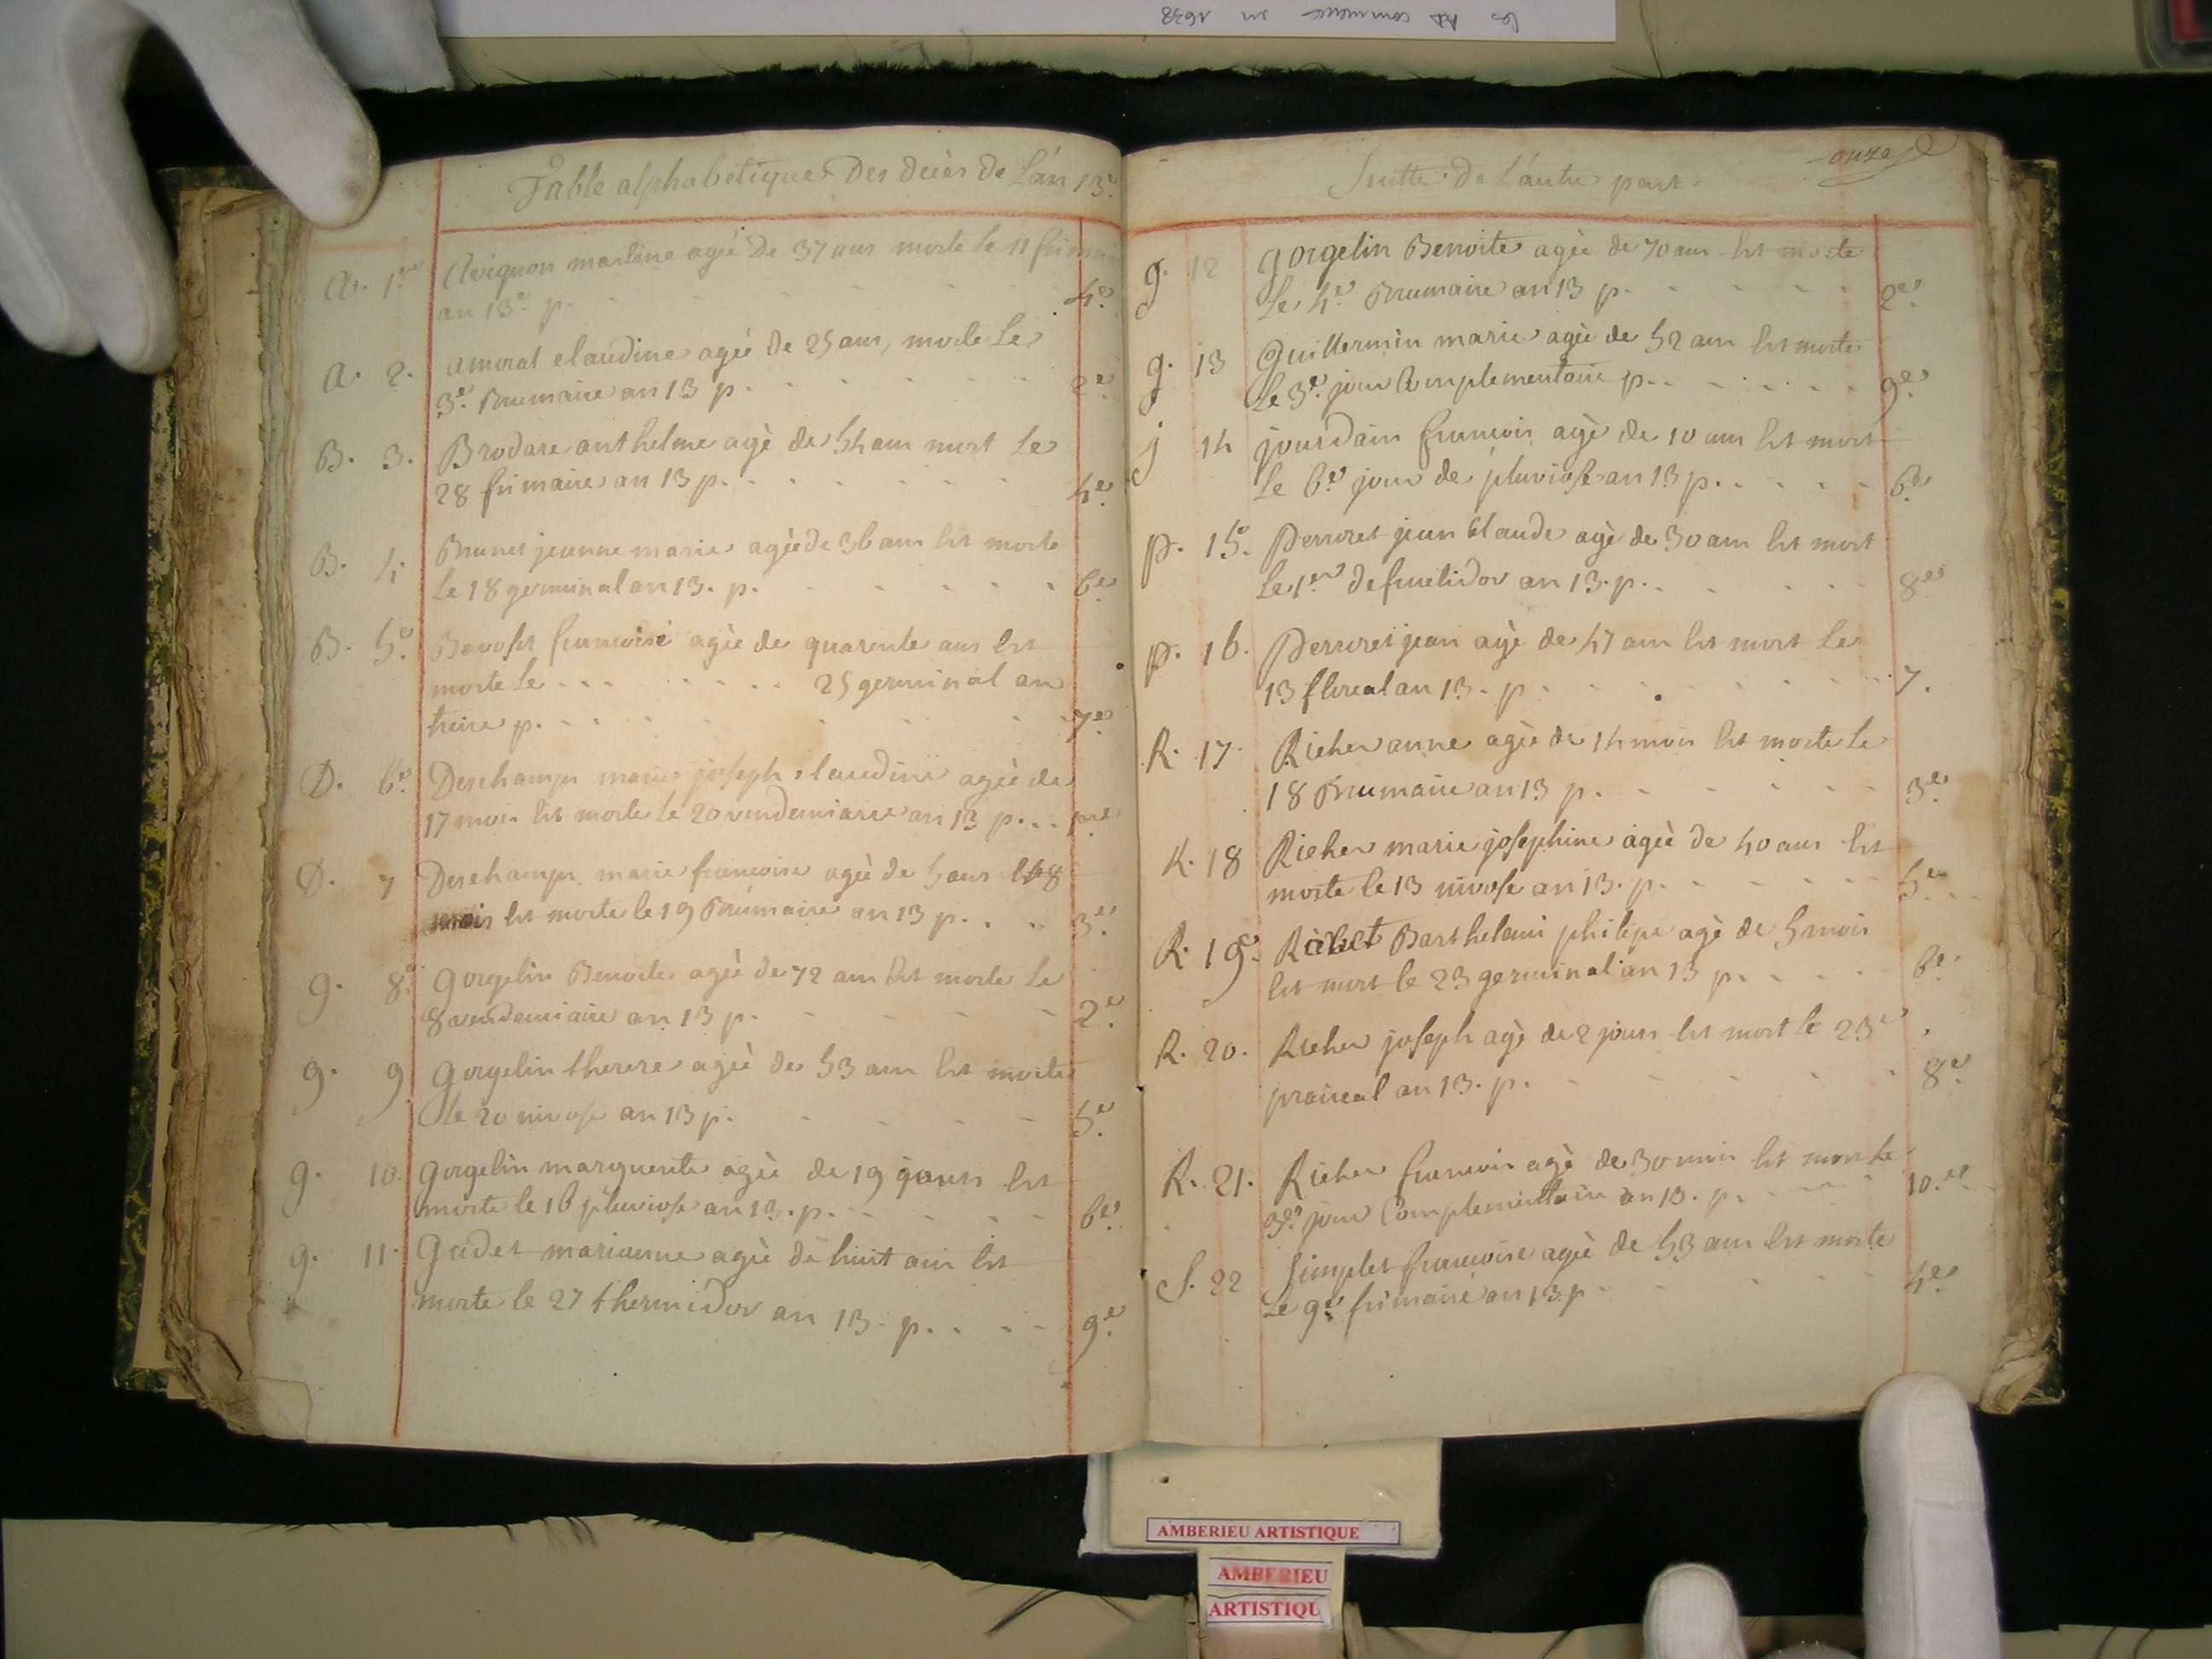 les commence en 1638
Table alphabetique Des décès de L'an 13e
A. 1er Avignon martine agée De 37 ans morte Le 11 frimaire
an 13e p. 4e
A. 2. amorat claudine agée de 25 ans, morte Le
3e. Brumaire an 13 p. 2e
B. 3. Brodare anthelme agè de 54 ans mort Le
28 frimaire an 13 p. 4e
B. 4 Brunet jeanne marie agée de 36 ans Est morte
Le 18 germinal an 13. p. 6e
B. 5e francoise agèe de quarente ans Est
morte Le 25 germinal an
treise p. 7e
D. 6e Deschamps marie joseph claudine agèe de
17 mois Est morte Le 20 vendemiaire an 13 p. 1ere
D. 7 Deschamps marie francoise agèe de 5 ans Et 8
mois Est morte le 19 Brumaire an 13 p. 3e
g. 8e gorgelin Benoite agèe de 72 ans Est morte Le
8 vendemiaire an 13 p. 2e
g. 9 gorgelin therese agèe de 53 ans Est morte
Le 20 nivose an 13 p. 5e
g. 10. gorgelin marguerite agèe de 19 jours Est
morte le 16 pluviose an 13. p. 6e
g. 11. gudet marianne agèe de huit ans Est
morte le 27 thermidor an 13. p. 9e
Suitte de L'autre part. onze
g. 12 gorgelin Benoite agèe de 70 ans Est morte
Le 4e Brumaire an 13 p. 2e
g. 13 guillermin marie agèe de 52 ans Est morte
Le 3e jour Complementaire p. 9e
j 14 jourdain francois agè de 10 ans Est mort
Le 6e jour de pluviose an 13 p. 6e
p. 15e. Perroret jean Claude agè de 30 ans Est mort
Le 1er de fructidor an 13. p. 8e
p. 16. Perroret jean agè de 47 ans Est mort Le
13 floreal an 13. p. 7.
R. 17. Richer anne agèe de 14 mois Est morte Le
18 Brumaire an 13 p. 3e
R. 18 Richer marie josephine agèe de 40 ans Est
morte le 13 nivose an 13. p. 5e
R. 19e. Barthelemi philipe agè de 5 mois
Est mort le 23 germinal an 13 p. 6e
R. 20. Richer joseph agè de 2 jours Est mort le 23e
praireal an 13. p. 8e
R. 21. Richer francois agè de 30 mois Est mort Le
3e jour Complementaire an 13. p. 10.e
S. 22 Simplet francoise agèe de 53 ans Est morte
Le 9e frimaire an 13 p. 4e
AMBERIEU ARTISTIQUE
AMBERIEU
ARTISTIQU